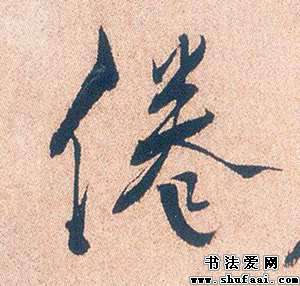 倦
书法爱网
www.shufaai.com